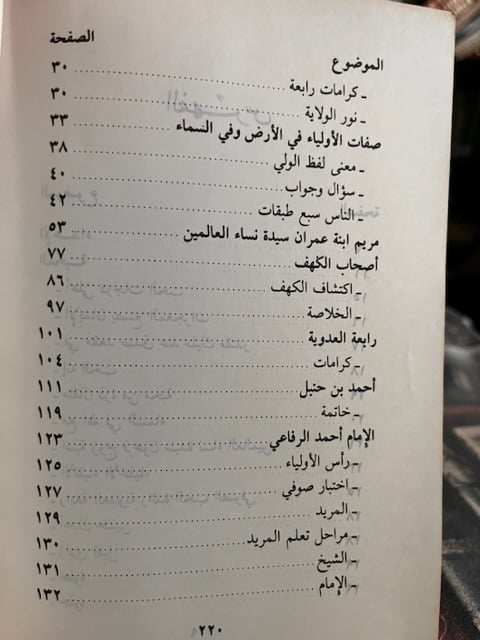 الموضوع الصفحة
ـ كرامات رابعة ٣٠
ـ نور الولاية ٣٠
صفات الأولياء في الأرض وفي السماء ٣٣
ـ معنى لفظ الولي ٣٨
ـ سؤال وجواب ٤٠
ـ الناس سبع طبقات ٤٢
مريم ابنة عمران سيدة نساء العالمين ٥٣
أصحاب الكهف ٧٧
ـ اكتشاف الكهف ٨٦
ـ الخلاصة ٩٧
رابعة العدوية ١٠١
ـ كرامات ١٠٤
أحمد بن حنبل ١١١
ـ خاتمة ١١٩
الإمام أحمد الرفاعي ١٢٣
ـ رأس الأولياء ١٢٥
ـ اختبار صوفي ١٢٧
ـ المريد ١٢٩
ـ مراحل تعلم المريد ١٣٠
ـ الشيخ ١٣١
ـ الإمام ١٣٢
٢٢٠